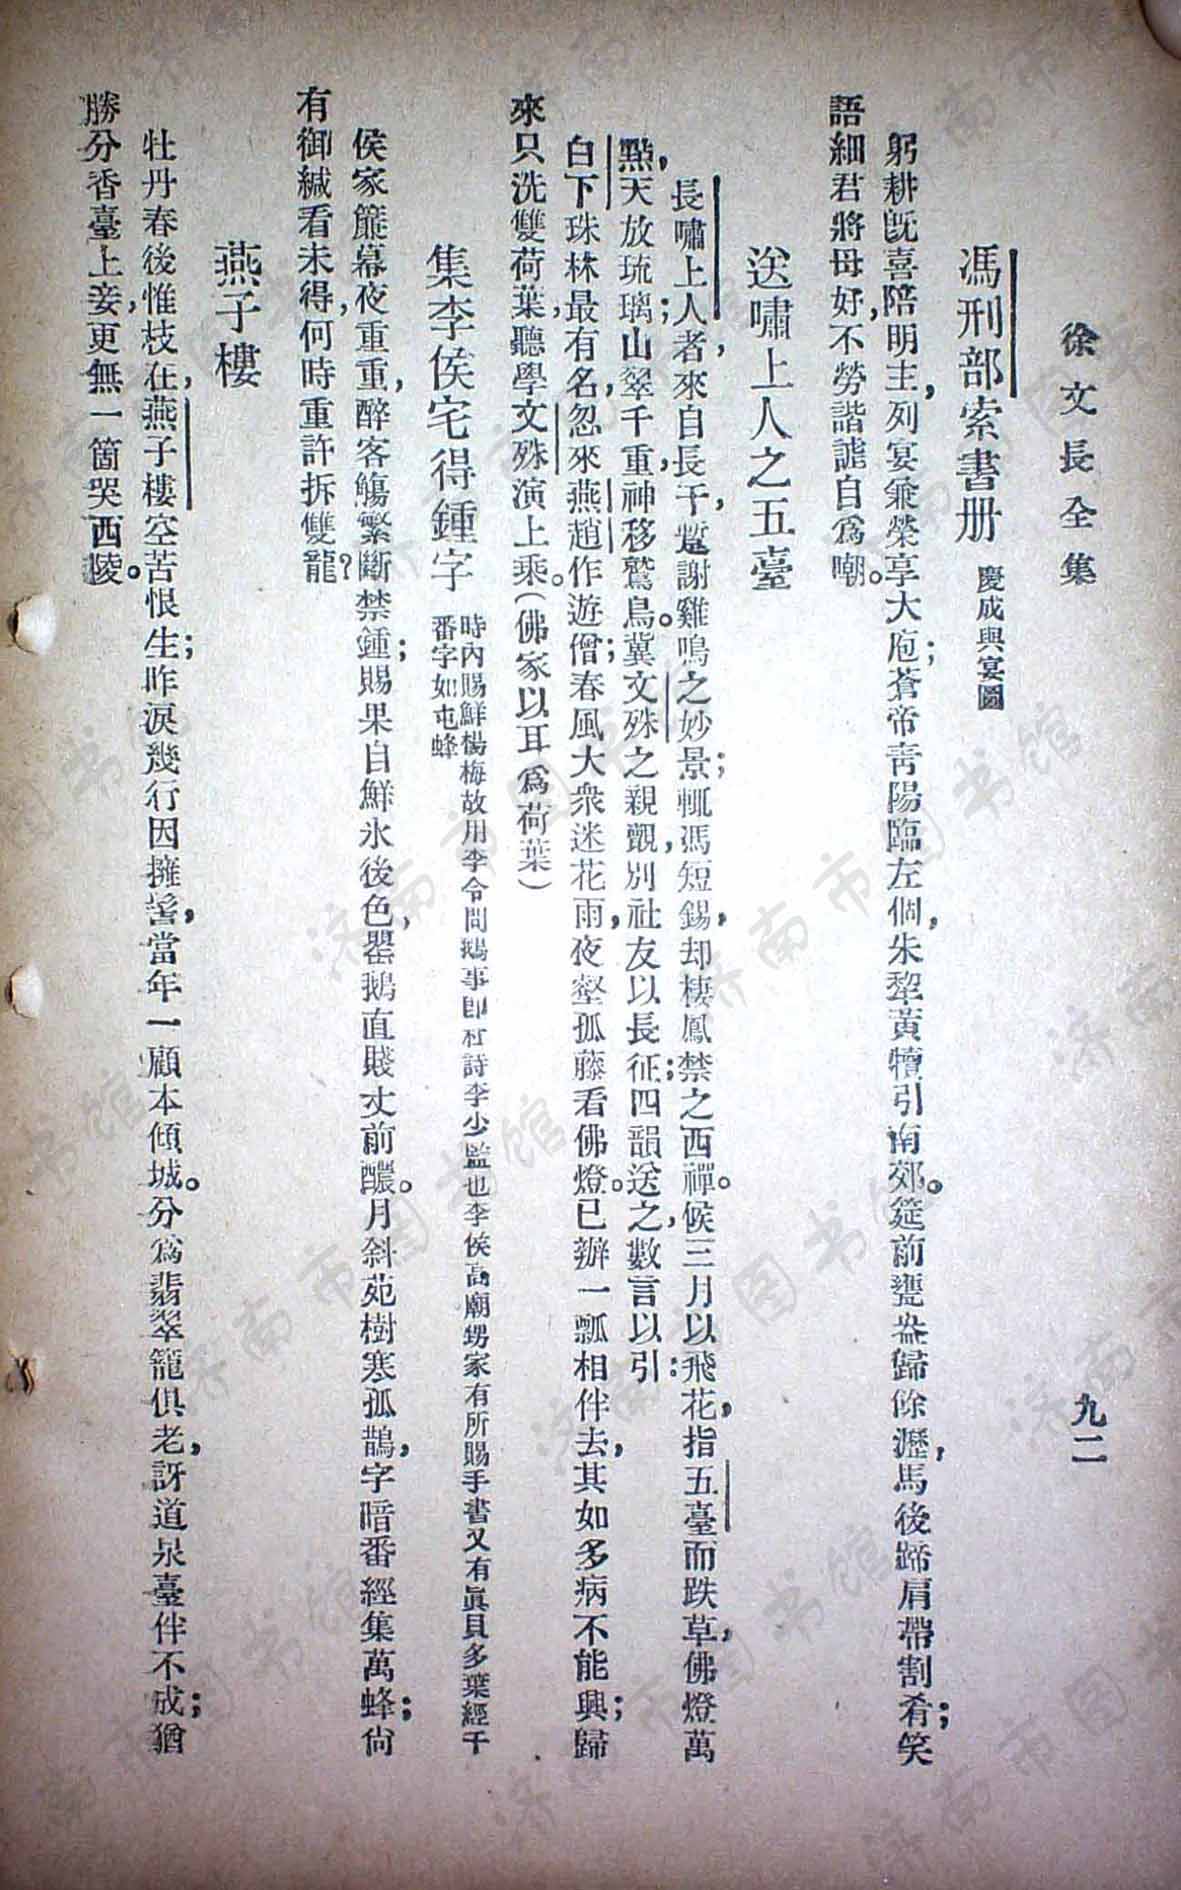 徐文長全集
九二
馮刑部索書册 慶成與宴圖
躬耕既喜陪明主，列宴兼榮享大庖；蒼帝青陽臨左個，朱犂黃犢引南郊。筵前甕盎歸餘瀝，馬後蹄肩帶割肴；笑
語細君將母好，不勞諧謔自爲嘲。
送嘯上人之五臺
長嘯上人者，來自長干，蹔謝雞鳴之妙景；輒馮短錫，却棲鳳禁之西禪。候三月以飛花，指五臺而跌草，佛燈萬
點，天放琉璃；山翠千重，神移鷲鳥。冀文殊之親覿，別社友以長征；四韻送之，數言以引：
白下珠林最有名，忽來燕趙作遊僧；春風大衆迷花雨，夜壑孤藤看佛燈。已辦一瓢相伴去，其如多病不能興；歸
來只洗雙荷葉，聽學文殊演上乘。（佛家以耳爲荷葉）
集李侯宅得鍾字 時內賜鮮楊梅故用李令問鵝事卽杜詩李少監也李侯高廟甥家有所賜手書又有眞貝多葉經千
番字如屯蜂
侯家簾幕夜重重，醉客觴繁斷禁鍾；賜果自鮮氷後色，罌鵝直賤丈前醲。月斜苑樹寒孤鵲，字暗番經集萬蜂；尙
有御緘看未得，何時重許拆雙龍？
燕子樓
牡丹春後惟枝在，燕子樓空苦恨生；昨淚幾行因擁髻，當年一顧本傾城。分爲翡翠籠俱老，訝道泉臺伴不成；猶
勝分香臺上妾，更無一箇哭西陵。